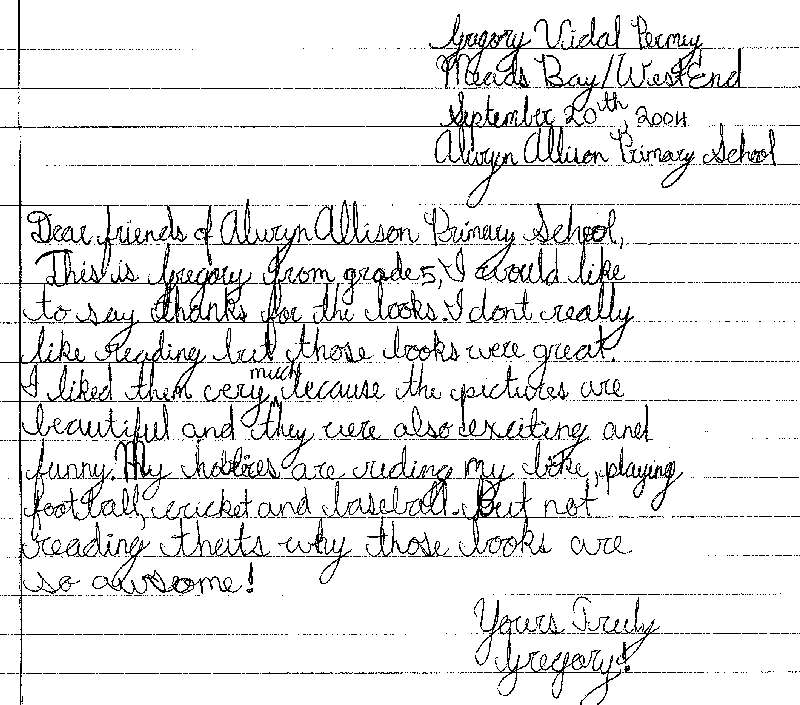 Gregory Vidal Permey
Meads Bay/West End
September 20th, 2004
Alwyn Allison Primary School
Dear friends of Alwyn Allison Primary School,
This is Gregory from grade 5, I would like
to say thanks for the books. I dont really
like reading but those books were great.
I liked them very much because the pictures are
beautiful and they were also exciting and
funny. My hobbies are riding my bike, playing
football, cricket and baseball. But not
reading thats why those books are
so awsome!
Yours Truly
Gregory!